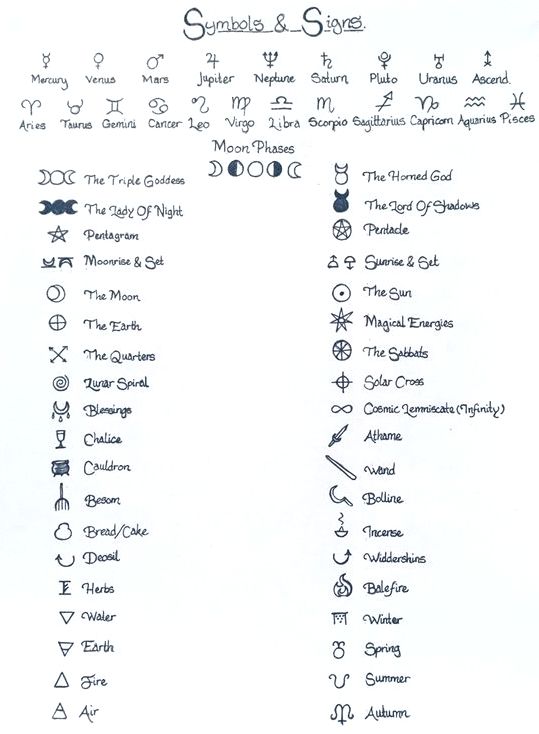 Symbols & Signs.
Mercury Venus Mars Jupiter Neptune Saturn Pluto Uranus Ascend.
Aries Taurus Gemini Cancer Leo Virgo Libra Scorpio Sagittarius Capricorn Aquarius Pisces
Moon Phases
The Triple Goddess
The Horned God
The Lady Of Night
The Lord Of Shadows
Pentagram
Pentacle
Moonrise & Set
Sunrise & Set
The Moon
The Sun
The Earth
Magical Energies
The Quarters
The Sabbats
Lunar Spiral
Solar Cross
Blessings
Cosmic Lemniscate (Infinity)
Chalice
Athame
Cauldron
Wand
Besom
Bolline
Bread/Cake
Incense
Deosil
Widdershins
Herbs
Balefire
Water
Winter
Earth
Spring
Fire
Summer
Air
Autumn